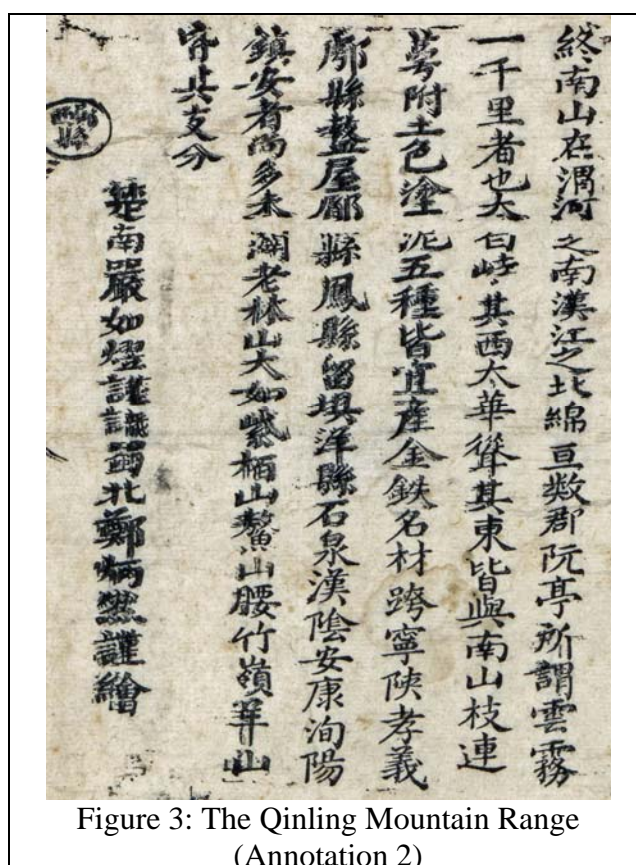 終南山在渭河之南漢江之北綿亘数郡阮亭所謂雲霧
一千里者也太白峙其西太華聳其東皆與南山枝連
萼附土色塗泥五種皆宜産金鉄名材跨寧陜孝義
鄠縣盩厔郿縣鳳縣留垻洋縣石泉漢陰安康洵陽
鎮安者尚多未闢老林山大如紫栢山鰲山腰竹嶺羊山
皆其支分
楚南嚴如熤謹識蜀北鄭炳然謹繪
縣
Figure 3: The Qinling Mountain Range
(Annotation 2)